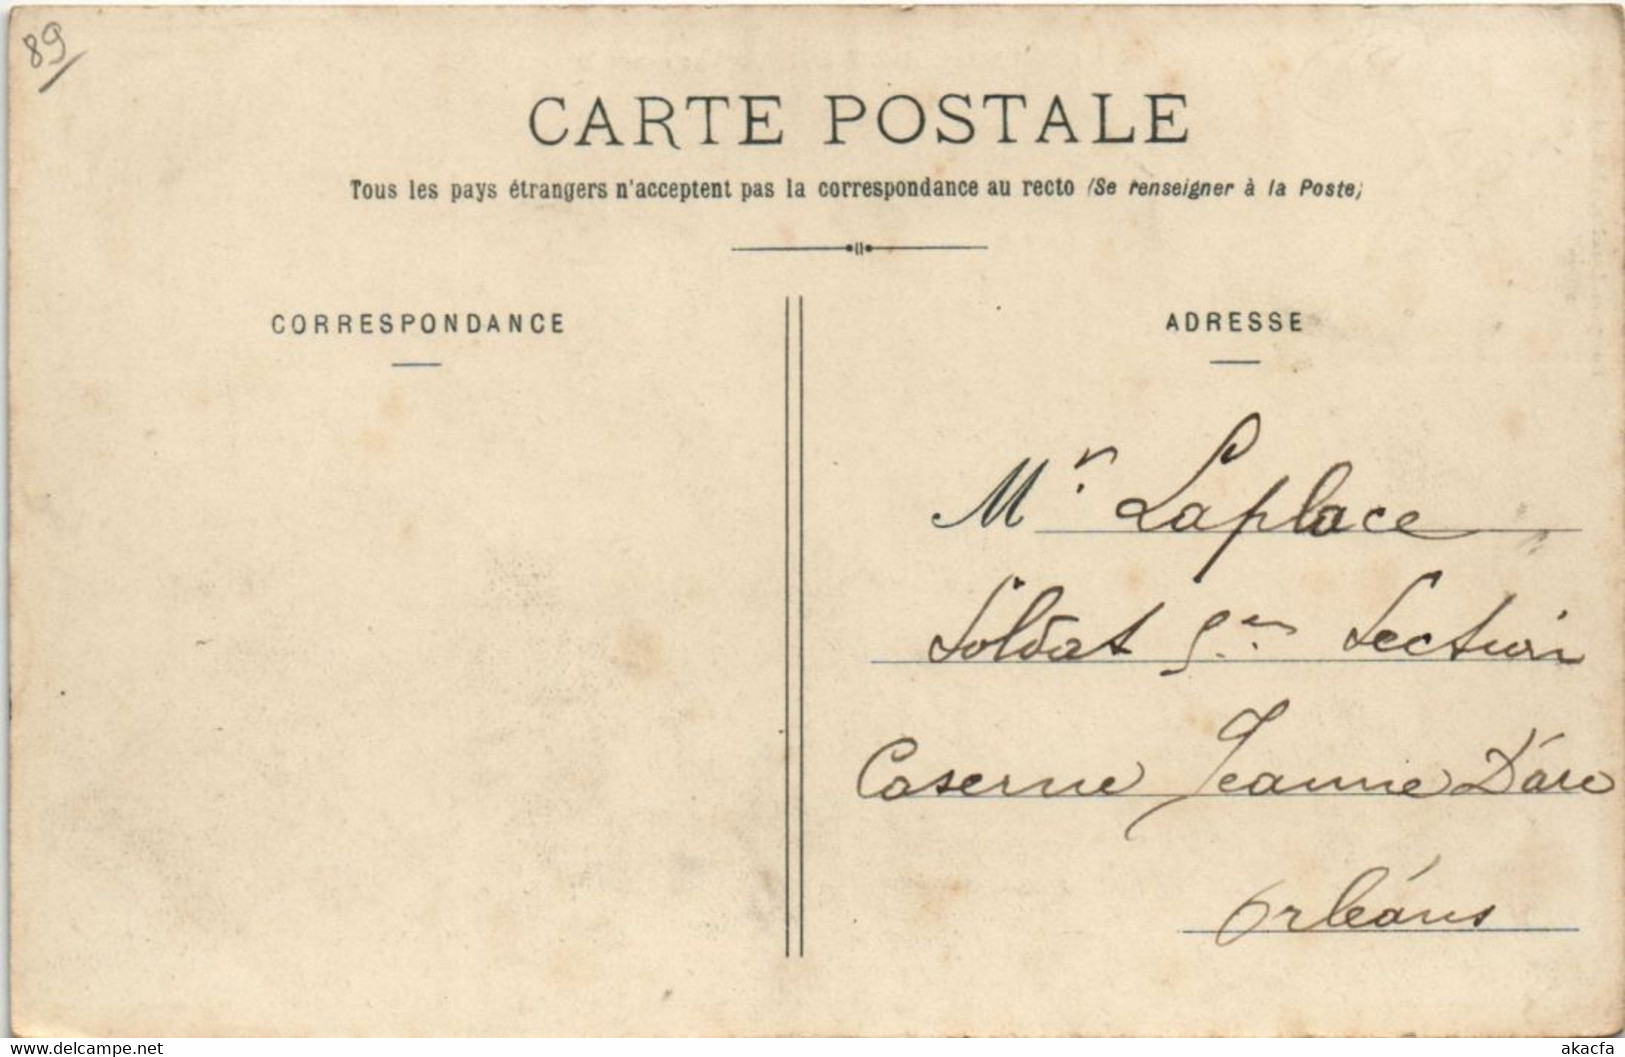 89
CARTE POSTALE
Tous les pays étrangers n'acceptent pas la correspondance au recto (Se renseigner à la Poste)
CORRESPONDANCE
ADRESSE
Mr Laplace
Soldat 5me Section
Caserne Jeanne D'arc
Orléans
delcampe.net
akacfa